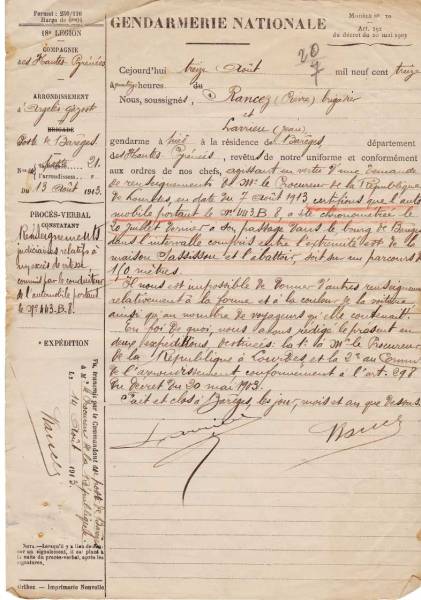 Format : 210/310
Marge de 0m05
18e LEGION
COMPAGNIE
des Hautes Pyrénées
ARRONDISSEMENT
d'Argelès Gazost
BRIGADE
Poste de Barèges
No 21.
du 13 Août 1913.
PROCÈS-VERBAL
CONSTATANT
Renseignements
judiciaires relatifs à
un excès de vitesse
commis par le conducteur
de l'automobile portant
le No 443. B. 8.
EXPÉDITION
Vu, transmis par le Commandant
Procureur de la République
Le 14 Août 1913.
Rancez
NOTA. — Lorsqu'il y a lieu de
un signalement, il est placé à
la suite du procès-verbal, après
Orthez — Imprimerie Nouvelle
GENDARMERIE NATIONALE
MODÈLE No 10
Art. 292
du décret du 20 mai 1903
20
7
Cejourd'hui treize Août mil neuf cent treize
à heures
Nous, soussignés, Rancez (Pierre) brigadier
et Larrieu (Jean)
gendarme à pied à la résidence de Barèges département
des Hautes Pyrénées, revêtus de notre uniforme et conformément
aux ordres de nos chefs, agissant en vertu d'une demande
de renseignements de Mr le Procureur de la République
de Lourdes, en date du 7 Août 1913 certifions que l'auto
mobile portant le No 443. B. 8, a été chronométrée le
20 juillet dernier à son passage dans le bourg de Barèges
dans l'intervalle compris entre l'extrémité est de la
maison et l'abattoir, soit sur un parcours de
110 mètres.
Il nous est impossible de donner d'autres renseignements
relativement à la forme et à la couleur de la voiture
ainsi qu'au nombre de voyageurs qu'elle contenait.
En foi de quoi, nous avons rédigé le présent en
deux expéditions destinées : la 1e à Mr le Procureur
de la République à Lourdes et la 2e au Comm
de l'arrondissement conformément à l'art. 298
du décret du 20 mai 1903.
Fait et clos à Barèges les jour, mois et an que dessus.
Larrieu
Rancez